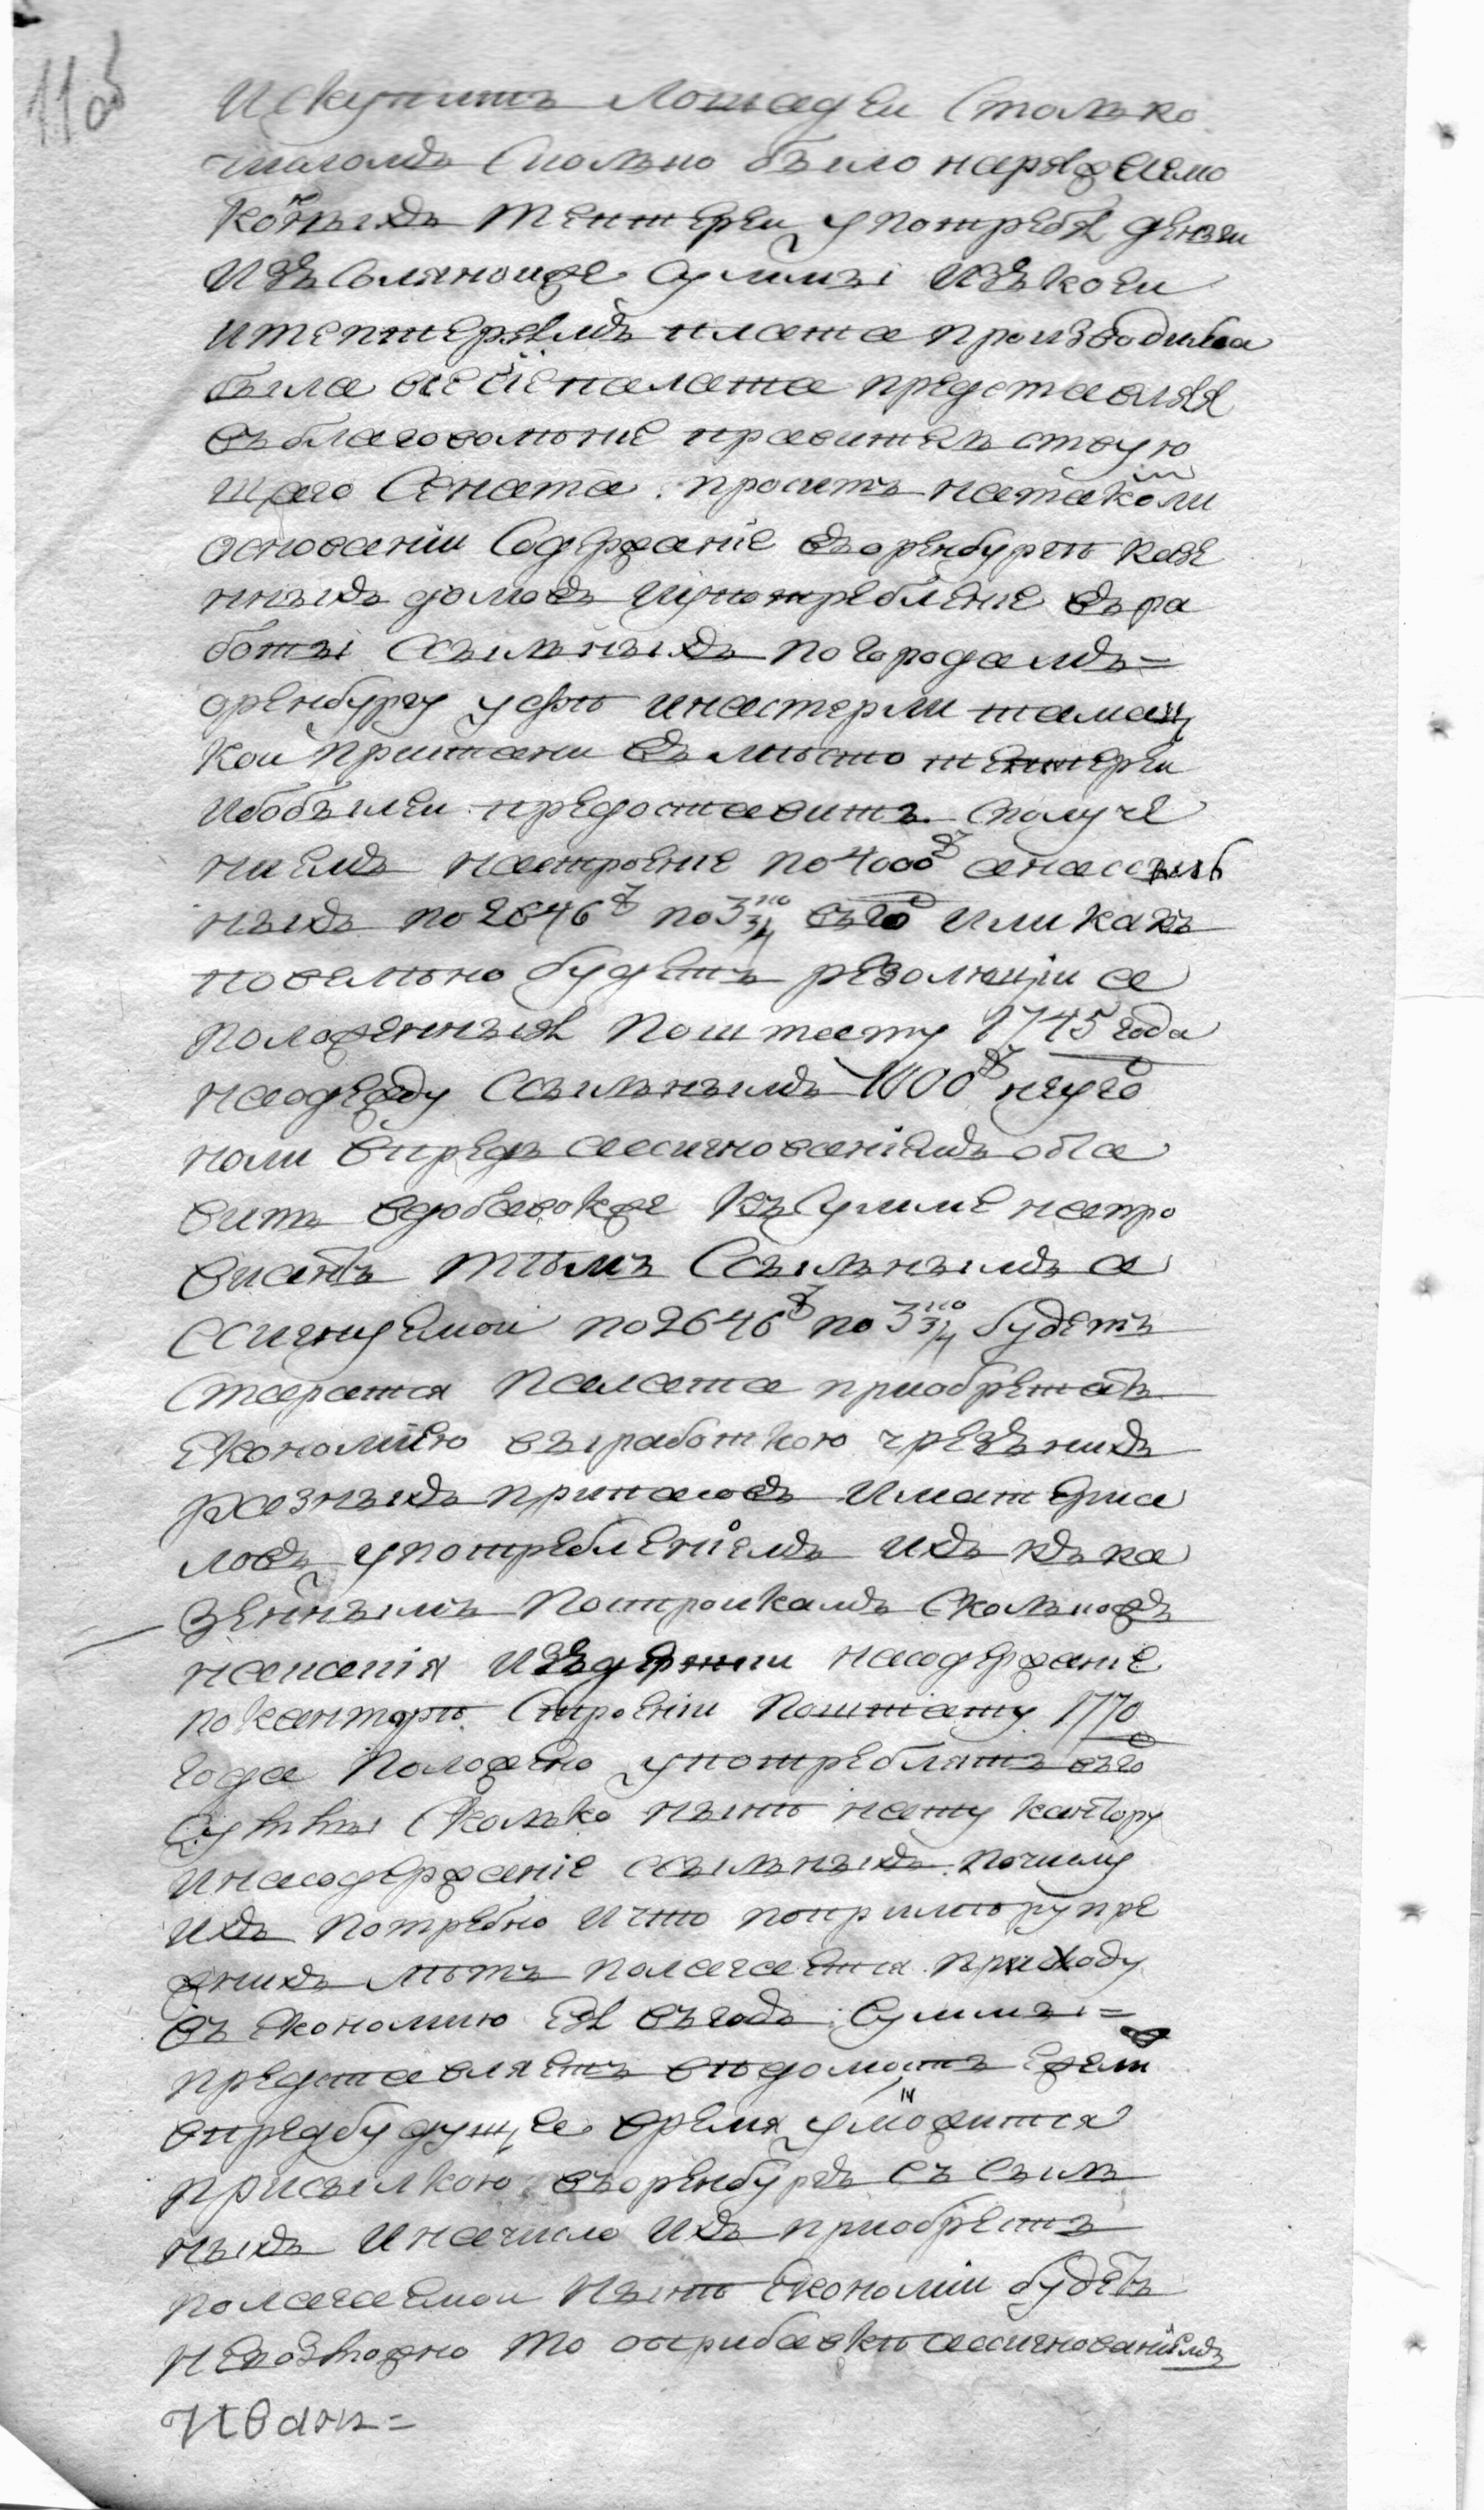 11об
Искупить лошадеи столко
числомъ сколько было наряжаемо
конныхъ тептереи употребя денги
изъ соляножъ суммы изъ коеи
итептерямъ плата производима
была о чем сїе палата представляя
въ благоволѣние правительствую
щаго Сената. просить натакомъ
основанiи Содержанiе въоренбургѣ казе
нныхъ домовъ иупотребление въра
боты ссыльныхъ погородамъ=
оренбургу уфѣ инастерли тамац
кои пристани въмѣсто тептереи
ибобылеи предоставить споруче
ниемъ настроение по4000р анассыль
ныхъ по2646р по3 3/4 въго или какъ
повелѣно будетъ резолюцiи а
положенныя поштату 1745 года
наодежду ссыльнымъ 1000р неуго
нноли впредь ассигнованiемъ оста
вить вдобавокже къСумме напро
виантъ тѣмъ Ссыльнымъ а
ссигнуемои по2646р по3 3/4 будетъ
старатся палата приобретать
економию выработкою чрезъ нихъ
разныхъ припасовъ иматериа
ловъ употребленiемъ ихъ къка
зеннымъ построикамъ Сколькожъ
напослѣ издержки насодержание
поканторѣ Строенiи поштату 1770
года положено употреблять въго
Суммы сколько нынѣ нату кантору
инасодержанiе ссыльныхъ почему
ихъ потребно ичто попримѣрупре
жнихъ лѣтъ полагается приходу
въ економию ея въгодъ суммы=
представляетъ вѣдомость ежели
впредбудущее время умножится
присылкою въоренбургъ ссыль
ныхъ иначисло ихъ приобрѣсть
полагаемои нынѣ економiи будетъ
невозможно то оприбавкѣ ассигнованiемъ
Иванъ=